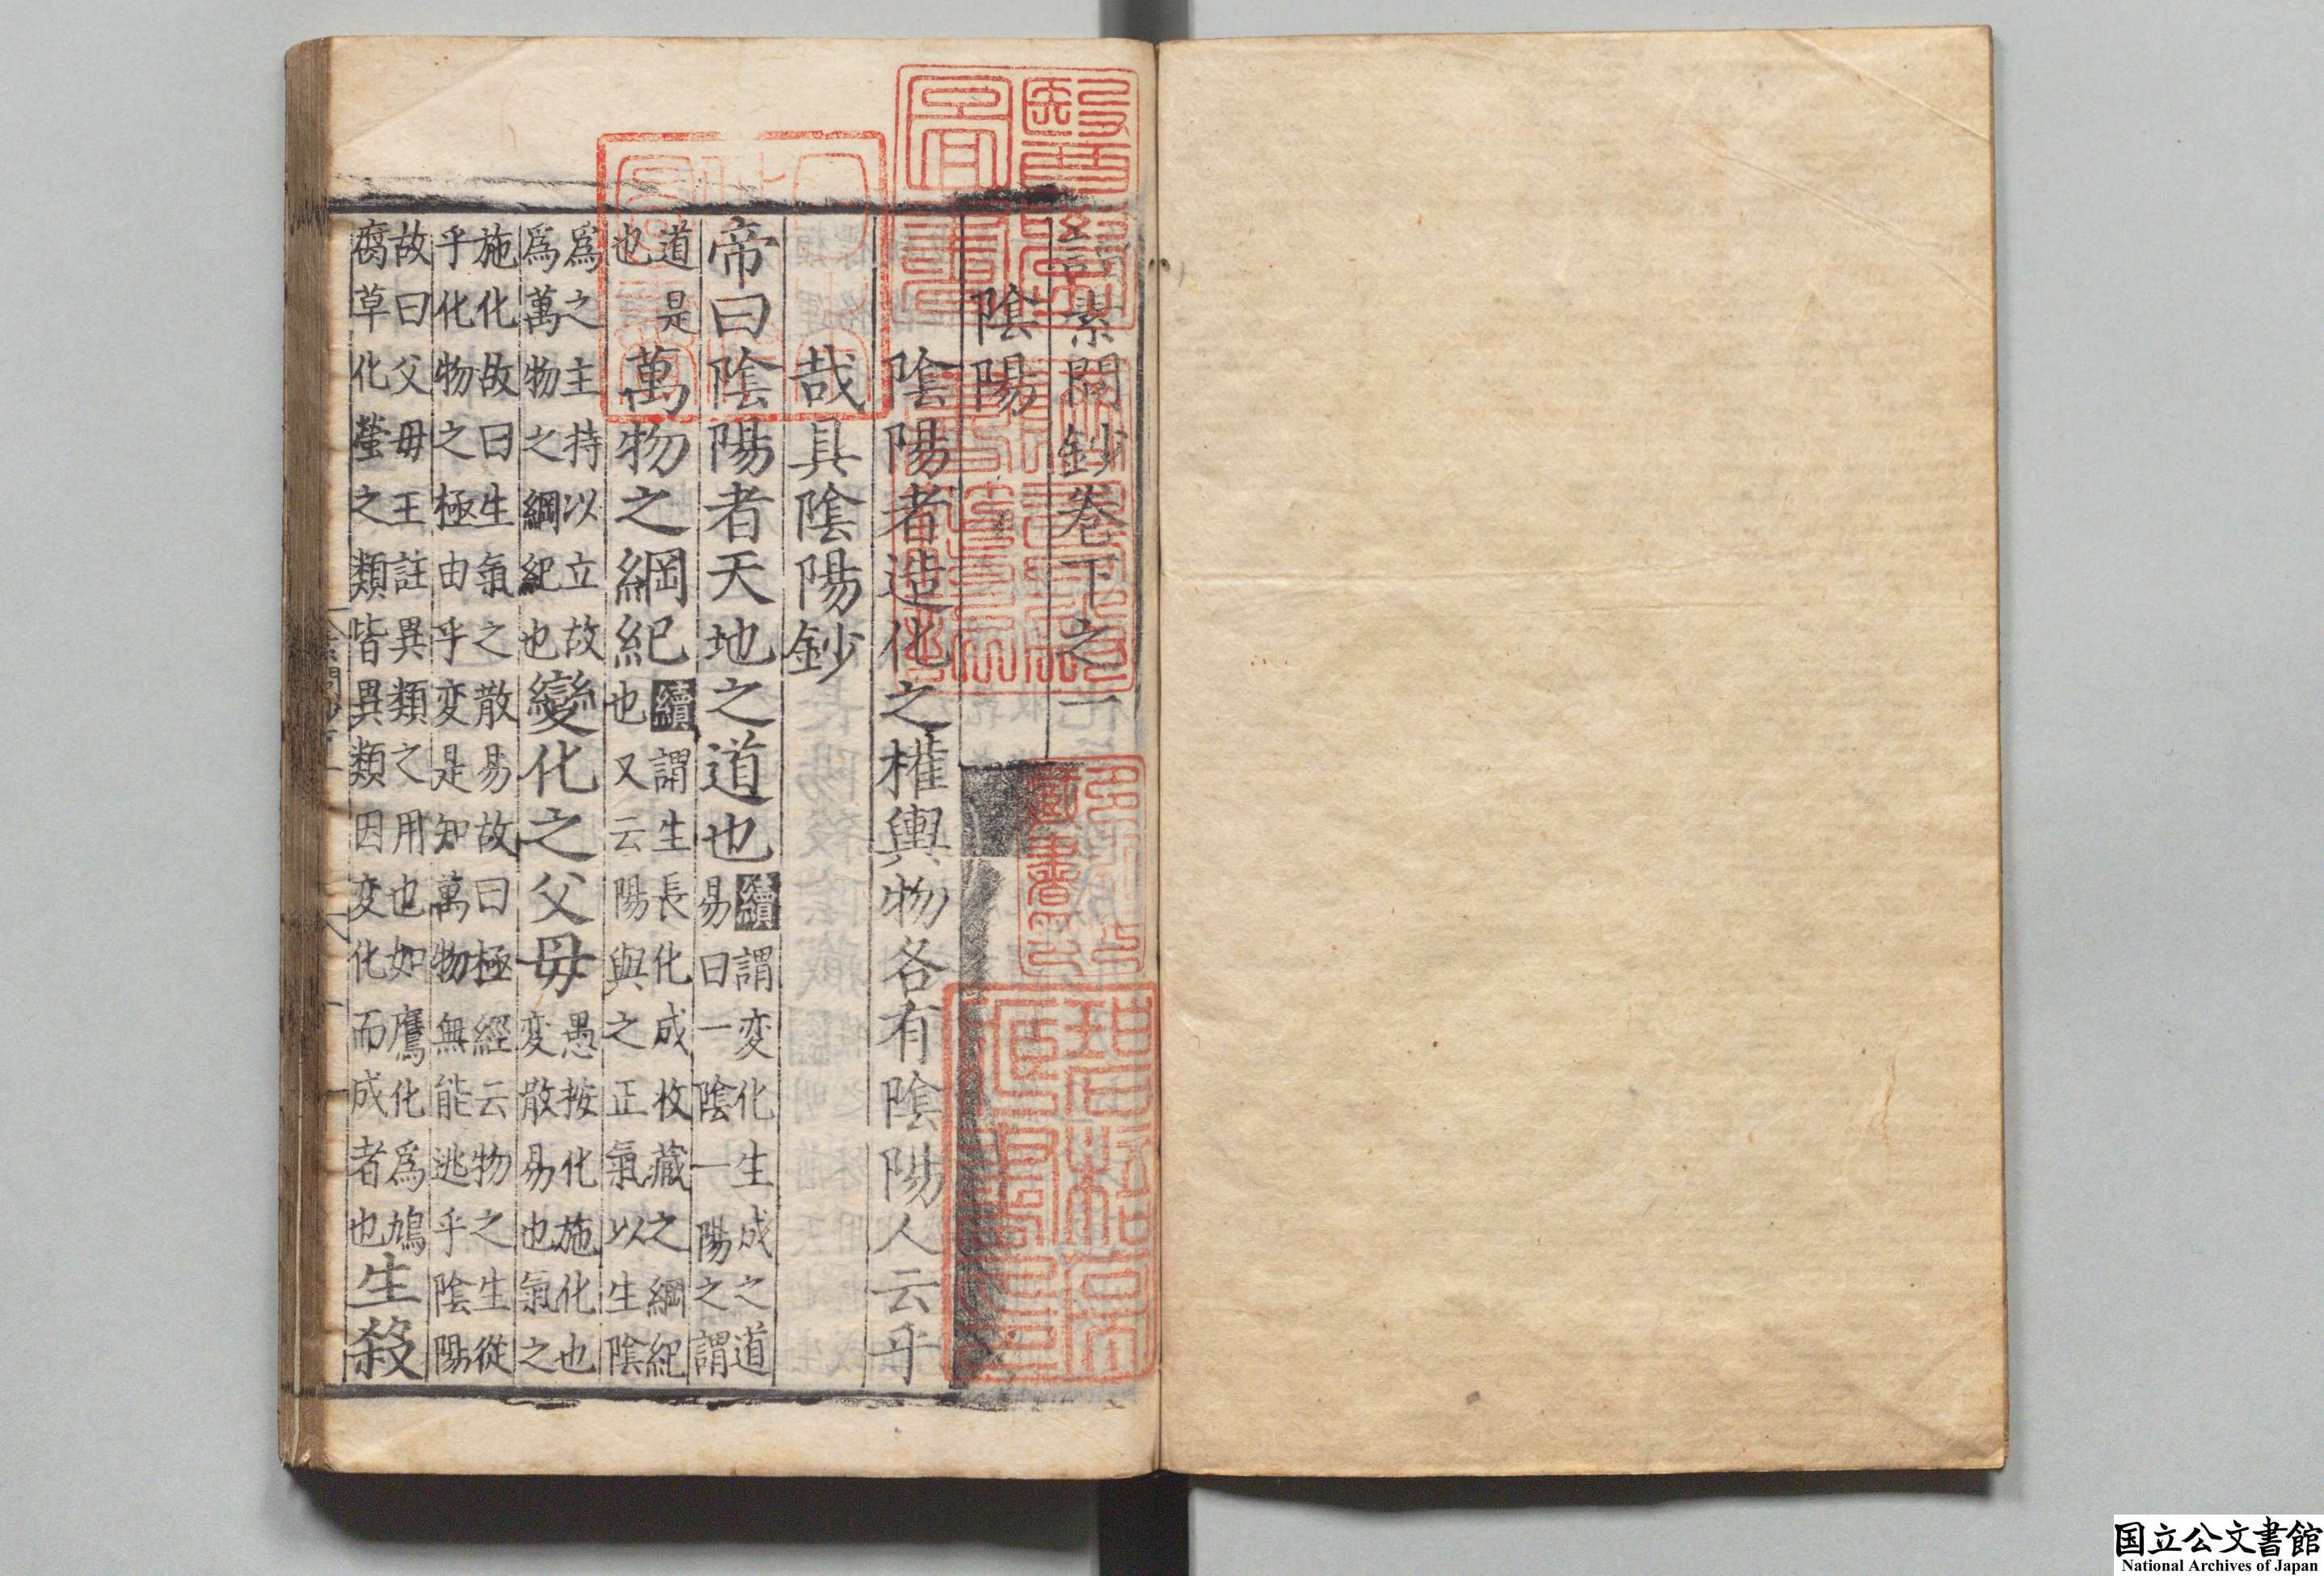 素問鈔卷下之一
陰陽
陰陽者造化之權輿物各有陰陽人云乎
哉具陰陽鈔
帝曰陰陽者天地之道也續謂変化生成之道
易曰一陰一陽之謂
道是
也
萬物之綱紀續謂生長化成收藏之綱紀
也又云陽與之正氣以生陰
爲之主持以立故
爲萬物之綱紀也
變化之父母愚按化施化也
変散易也氣之
施化故曰生氣之散易故曰極經云物之生從
乎化物之極由乎変是知萬物無能逃乎陰陽
故曰父母王註異類之用也如鷹化爲鳩
腐草化螢之類皆異類因変化而成者也
生殺
国立公文書館
National Archives of Japan